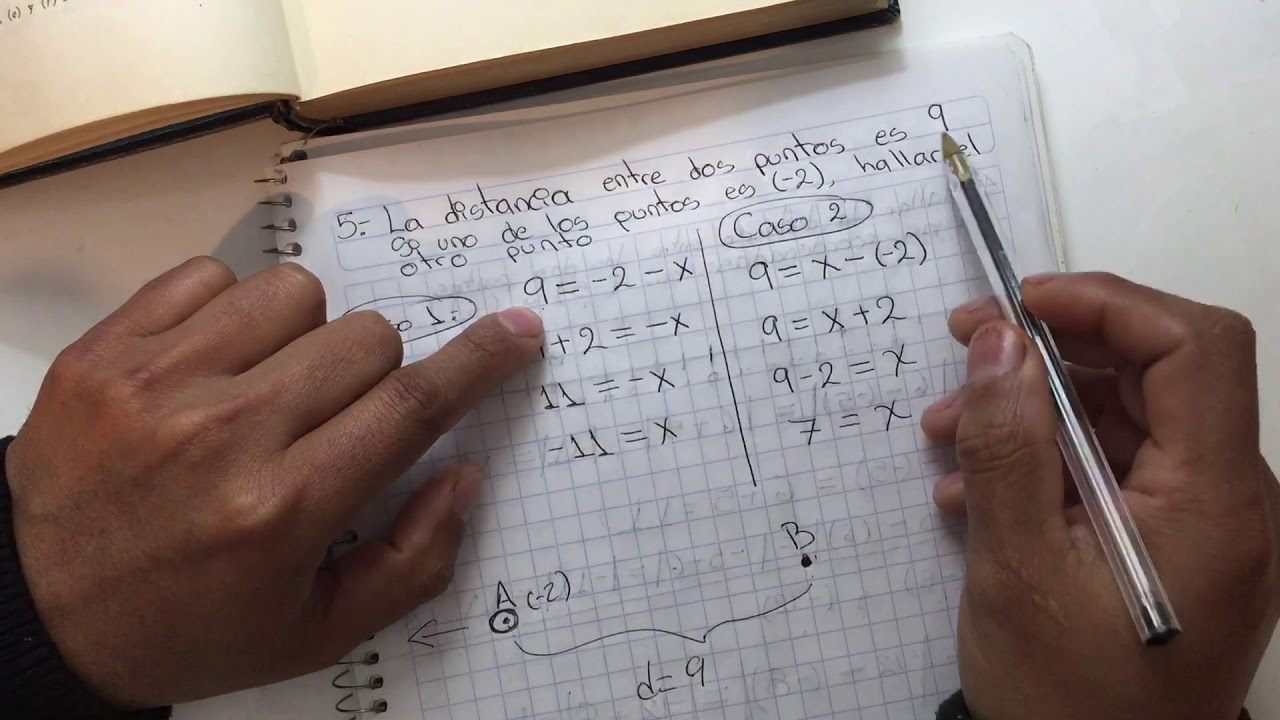 5.- La distancia entre dos puntos es 9
si uno de los puntos es (-2), hallar el
otro punto
9 = -2 - x
+ 2 = -x
11 = -x
-11 = x
Caso 2
9 = x - (-2)
9 = x + 2
9 - 2 = x
7 = x
A (-2)
B
d = 9